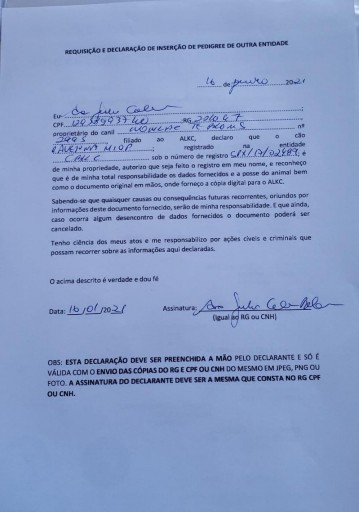 REQUISIÇÃO E DECLARAÇÃO DE INSERÇÃO DE PEDIGREE DE OUTRA ENTIDADE
16 de 2021
Eu
CPF RG
proprietário do canil nº
filiado ao ALKC, declaro que o cão
registrado na entidade
sob o número de registro é
de minha propriedade, autorizo que seja feito o registro em meu nome, e reconheço
que é de minha total responsabilidade os dados fornecidos e a posse do animal bem
como o documento original em mãos, onde forneço a cópia digital para o ALKC.
Sabendo-se que quaisquer causas ou consequências futuras recorrentes, oriundos por
informações deste documento fornecido, serão de minha responsabilidade. E que ainda,
caso ocorra algum desencontro de dados fornecidos o documento poderá ser
cancelado.
Tenho ciência dos meus atos e me responsabilizo por ações cíveis e criminais que
possam recorrer sobre as informações aqui declaradas.
O acima descrito é verdade e dou fé
Data: 16/01/2021 Assinatura:
(igual ao RG ou CNH)
OBS: ESTA DECLARAÇÃO DEVE SER PREENCHIDA A MÃO PELO DECLARANTE E SÓ É
VÁLIDA COM O ENVIO DAS CÓPIAS DO RG E CPF OU CNH DO MESMO EM JPEG, PNG OU
FOTO. A ASSINATURA DO DECLARANTE DEVE SER A MESMA QUE CONSTA NO RG CPF
OU CNH.